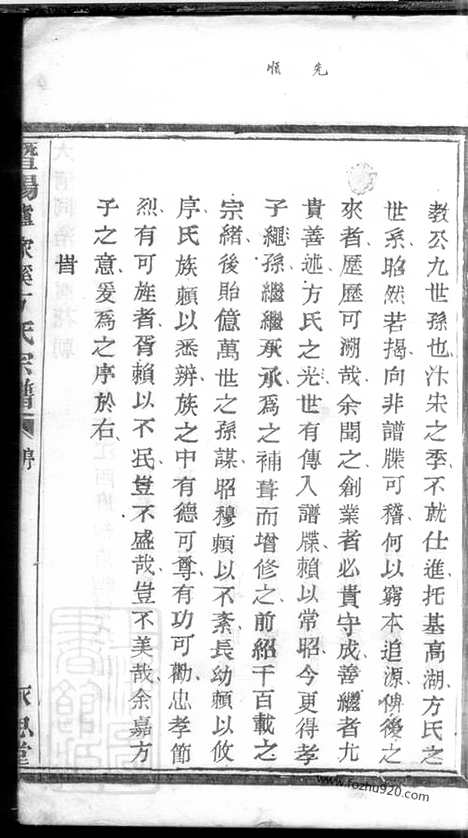 先
順
教公九世孫也汴宋之季不就仕進托基高湖方氏之
世系昭然若揭向非譜牒可稽何以窮本追源俾後之
來者歷歷可溯哉余聞之創業者必貴守成善繼者尤
貴善述方氏之光世有傳人譜牒賴以常昭今更得孝
子繩孫繼繼承承為之補葺而增修之前紹千百載之
宗緒後貽億萬世之孫謀昭穆賴以不紊長幼賴以攸
序氏族賴以悉辨族之中有德可尊有功可勸忠孝節
烈有可旌者胥賴以不泯豈不盛哉豈不美哉余嘉方
子之意爰為之序於右
旹
暨陽 家溪方氏宗譜 序 永思堂
www.fozhu920.com